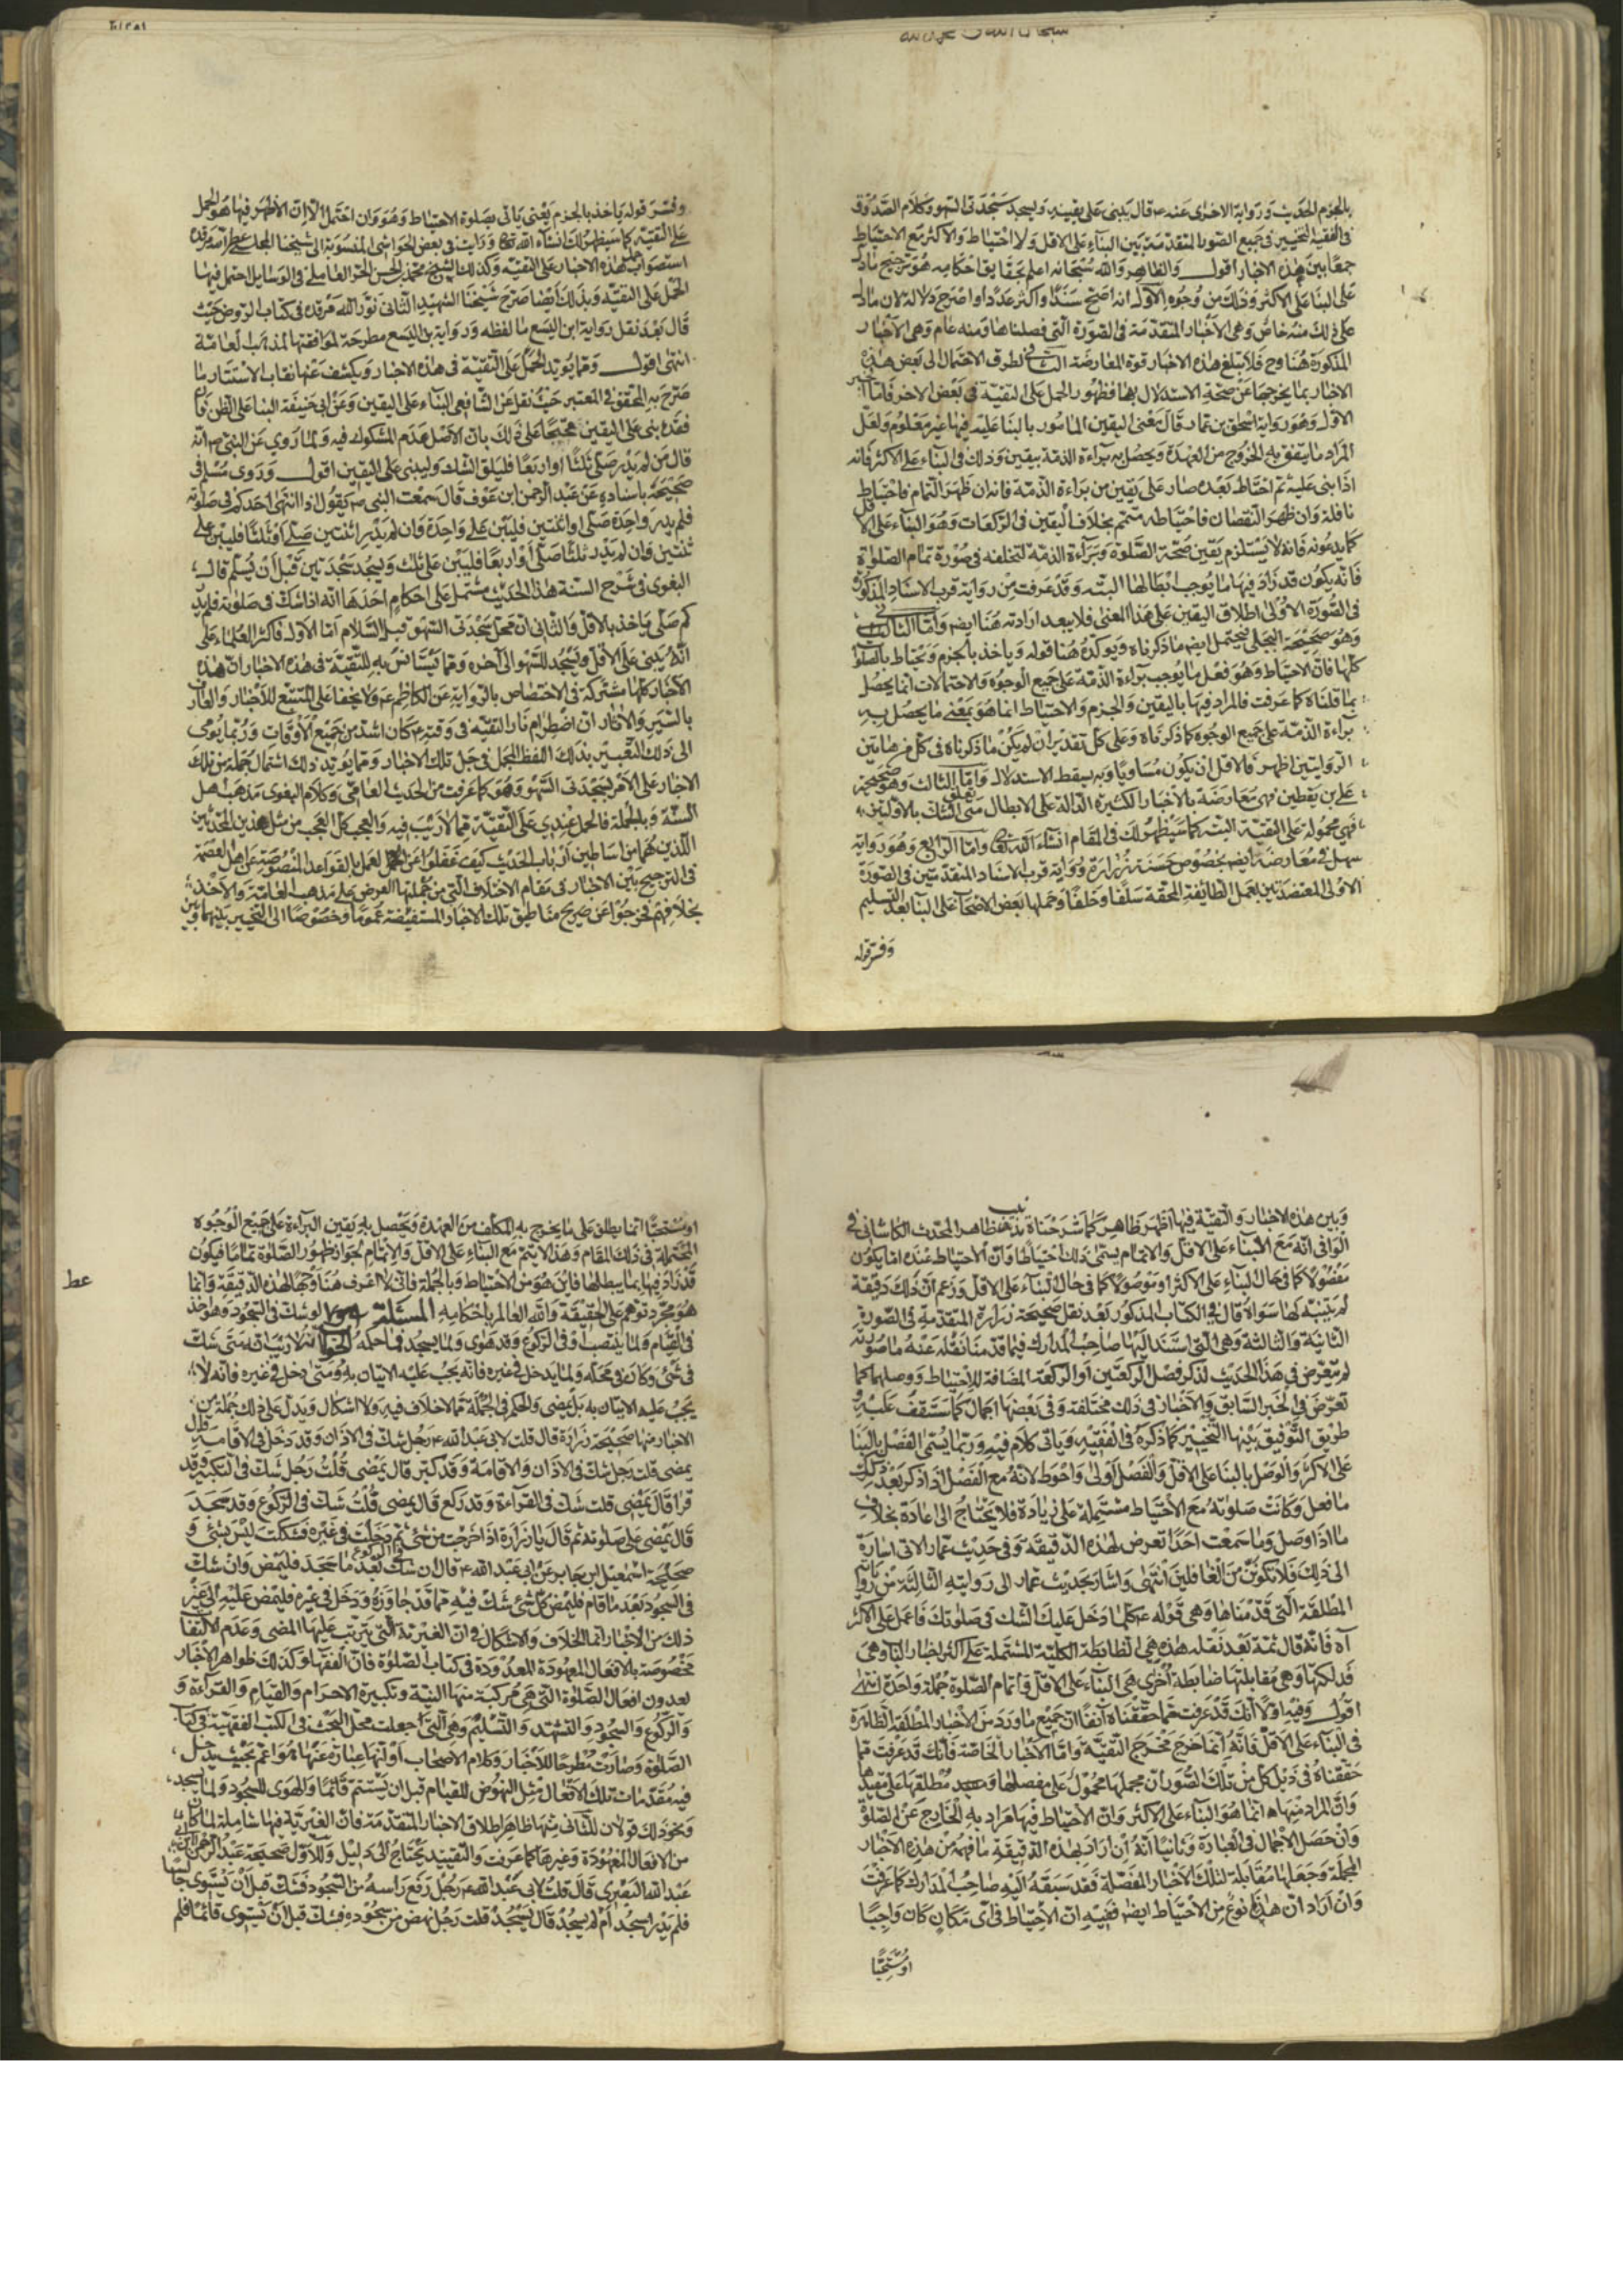 بالجزم الحديث ورواية الاخرى عنه ع قال يبنى على يقينه ويسجد سجدتى السهو وكلام الصدوق
فى الفقيه التخيير فى جميع الصور المتقدمة بين البناء على الاقل ولا احتياط والاكثر مع الاحتياط
جمعا بين هذه الاخبار اقول والظاهر والله سبحانه اعلم بحقايق احكامه هو ترجيح ما دل
على البناء على الاكثر وذلك من وجوه الاول انه اصح سندا واكثر عددا واصرح دلالة لان ما دل
على ذلك منه خاص وهى الاخبار المتقدمة فى الصورة التى فصلناها ومنه عام وهى الاخبار
المذكورة هنا وح فلا تبلغ هذه الاخبار قوة المعارضة الثانى تطرق الاحتمال الى بعض هذه
الاخبار بما يخرجها عن صحة الاستدلال بها فظهور الحمل على التقية فى بعض الاخر فاما الخبر
الاول وهو رواية اسحق بن عمار قال يعنى اليقين المامور بالبنا عليه فيها غير معلوم ولعل
المراد ما يتفق به الخروج من العهدة ويحصل به براءة الذمة بيقين وذلك فى البناء على الاكثر فانه
اذا بنى عليه ثم احتاط بعده صار على يقين من براءة الذمة فانه ان ظهر التمام فاحتياط
نافلة وان ظهر النقصان فاحتياطه متمم بخلاف اليقين فى الركعات وهو البناء على الاقل
كما يدعونه فانه لا يستلزم يقين صحة الصلوة وبراءة الذمة لتخلفه فى صورة تمام الصلوة
فانه يكون قد زاد فيها ما يوجب ابطالها البتة وقد عرفت من رواية قرب الاسناد المذكورة
فى الصورة الاولى اطلاق اليقين على هذا المعنى فلا يبعد ارادته هنا ايضه واما الثانى
وهو صحيحة البجلى فيحتمل ايضه ما ذكرناه ويؤكده هنا قوله وياخذ بالجزم ويحتاط بالصلوات
كلها فان الاحتياط وهو فعل ما يوجب براءة الذمة على جميع الوجوه والاحتمالات انما يحصل
بما قلناه كما عرفت فالمراد فيها باليقين والجزم والاحتياط انما هو بمعنى ما يحصل به
براءة الذمة على جميع الوجوه كما ذكرناه وعلى كل تقدير ان لم يكن ما ذكرناه فى كل من هاتين
الروايتين اظهر فالاقل ان يكون مساويا وبه يسقط الاستدلال واما الثالث وهو صحيحة
على بن يقطين فهى معارضة بالاخبار الكثيرة الدالة على الابطال متى تعلق الشك بالاولتين
فهى محمولة على التقية البتة كما سيظهر لك فى المقام انشاء الله تعالى واما الرابع وهو رواية
سهل فى معارضة ايضه بخصوص حسنة زرارة ورواية قرب الاسناد المتقدمتين فى الصورة
الاولى المعتضدتين بعمل الطائفة المحقة سلفا وخلفا وحملها بعض الاصحاب على البنا بعد التسليم
وفسر قوله
وفسر قوله ياخذ بالجزم يعنى ياتى بصلوة الاحتياط وهو وان احتمل الا ان الاظهر فيها هو الحمل
على التقية كما سيظهر لك انشاء الله تعالى ورايت فى بعض الحواشى المنسوبة الى شيخنا المجلسى عطر الله مرقده
استصواب حمل هذه الاخبار على التقية وكذلك الشيخ محمد بن الحسن الحر العاملى فى الوسايل احتمل فيها
الحمل على التقية وبذلك ايضا صرح شيخنا الشهيد الثانى نور الله مرقده فى كتاب الروض حيث
قال بعد نقل رواية ابن اليسع ما لفظه ورواية بن اليسع مطرحة لموافقتها لمذهب العامة
انتهى اقول ومما يؤيد الحمل على التقية فى هذه الاخبار ويكشف عنها نقاب الاستتار ما
صرح به المحقق فى المعتبر حيث نقل عن الشافعى البناء على اليقين وعن ابى حنيفة البنا على الظن فان
فقده بنى على اليقين محتجا على ذلك بان الاصل عدم المشكوك فيه ولما روى عن النبى ص انه
قال من لم يدر صلى ثلثا او اربعا فليلق الشك وليبنى على اليقين اقول وروى مسلم فى
صحيحه باسناده عن عبد الرحمن ابن عوف قال سمعت النبى ص يقول اذا انتهى احدكم فى صلوته
فلم يدر واحدة صلى او اثنتين فليبن على واحدة وان لم يدر اثنتين صلى او ثلثا فليبن على
ثنتين وان لم يدر ثلثا صلى او اربعا فليبن على ثلث وليسجد سجدتين قبل ان يسلم قال
البغوى فى شرح السنة هذا الحديث مشتمل على احكام احدها انه اذا شك فى صلوته فلم يدر
كم صلى ياخذ بالاقل والثانى ان محل سجدتى السهو قبل السلام اما الاول فاكثر العلماء على
انه يبنى على الاقل ويسجد للسهو الى آخره ومما يستانس به للتقية فى هذه الاخبار ان هذه
الاخبار كلها مشتركة فى الاختصاص بالرواية عن الكاظم ع ولا يخفا على المتتبع للاخبار والعارف
بالسير والاثار ان اضطرام نار التقية فى وقته ع كان اشد من جميع الاوقات وربما يؤمى
الى ذلك التعبير بذلك اللفظ المجمل فى جل تلك الاخبار ومما يؤيد ذلك اشتمال جملة من تلك
الاخبار على الامر بسجدتى السهو وهو كما عرفت من الحديث العامى وكلام البغوى مذهب اهل
السنة وبالجملة فالحمل عندى على التقية مما لا ريب فيه والعجب كل العجب من مثل هذين المحدثين
اللذين هما من اساطين ارباب الحديث كيف غفلوا عن العمل بالقواعد المنصوصة عن اهل العصمة
فى الترجيح بين الاخبار فى مقام الاختلاف التى من جملتها العرض على مذهب العامة والاخذ
بخلافهم فخرجوا عن صريح مناطيق تلك الاخبار المستفيضة عموما وخصوصا الى التخيير بينهما وبين
وبين هذه الاخبار والتقية فيها اظهر ظاهر كما شرحناه ظاهر المحدث الكاشانى فى
الوافى انه مع البناء على الاقل والاتمام يسمى ذلك احتياطا وان الاحتياط عنده اما يكون
مفصولا كما فى حال البناء على الاكثر او موصولا كما فى حال البناء على الاقل وزعم ان ذلك دقيقة
لم يتنبه لها سواه قال فى الكتاب المذكور بعد نقل صحيحة زرارة المتقدمة فى الصورة
الثانية والثالثة وهى التى استند اليها صاحب المدارك فيما قدمنا نقله عنه ما صورته
لم يتعرض فى هذا الحديث لذكر فصل الركعتين او الركعة المضافة للاحتياط ووصلهما كما
تعرض فى الخبر السابق والاخبار فى ذلك مختلفة وفى بعضها اجمال كما ستقف عليه و
طريق التوفيق بينها التخيير كما ذكره فى الفقيه وياتى كلام فيه وربما يسمى الفصل بالبنا
على الاكثر والوصل بالبنا على الاقل والفصل اولى واحوط لانه مع الفصل اذا ذكر بعد ذلك
ما فعل وكانت صلوته مع الاحتياط مشتملة على زيادة فلا يحتاج الى اعادة بخلاف
ما اذا وصل وما سمعت احدا تعرض لهذه الدقيقة وفى حديث عمار الاتى اشارة
الى ذلك فلا تكونن من الغافلين انتهى واشار بحديث عمار الى روايته الثالثة من رواياته
المطلقة التى قدمناها وهى قوله ع كلما دخل عليك الشك فى صلوتك فاعمل على الاكثر
آه فانه قال ثمة بعد نقله هذه هى الضابطة الكلية المشتملة على اكثر اخبار البنا وهى
فذلكتها وهى مقابلتها ضابطة اخرى هى البناء على الاقل واتمام الصلوة جملة واحدة انتهى
اقول وفيه اولا انك قد عرفت مما حققناه آنفا ان جميع ما ورد من الاخبار المطلقة الظاهرة
فى البناء على الاقل فانه انما خرج مخرج التقية واما الاخبار الخاصة فانك قد عرفت مما
حققناه فى ذيل كل من تلك الصور ان مجملها محمول على مفصلها ومطلقها على مقيدها
وان المراد منها انما هو البناء على الاكثر وان الاحتياط فيها مراد به الخارج عن الصلوة
وان حصل الاجمال فى العبارة وثانيا انه ان اراد بهذه الدقيقة ما فهمه من هذه الاخبار
المجملة وجعلها مقابلة لتلك الاخبار المفصلة فقد سبقه اليه صاحب المدارك كما عرفت
وان اراد ان هذا نوع من الاحتياط ايضه ففيه ان الاحتياط فى اى مكان كان واجبا
او مستحبا
او مستحبا انما يطلق على ما يخرج به المكلف من العهدة ويحصل به يقين البراءة على جميع الوجوه
المحتملة فى ذلك المقام وهذا لا يتم مع البناء على الاقل والاتمام لجواز ظهور الصلوة تماما فيكون
قد زاد فيها بما يبطلها فاين هو من الاحتياط وبالجملة فانى لا اعرف هنا وجها لهذه الدقيقة وانما
هو مجرد توهم على الحقيقة والله العالم باحكامه المسئلة لو شك فى السجود وهو اخذ
فى القيام ولما ينتصب او فى الركوع وقد هوى ولما يسجد فما حكمه الجواب انه لا ريب انه متى شك
فى شئ وكان فى محله ولما يدخل فى غيره فانه يجب عليه الاتيان به ومتى دخل فى غيره فانه لا
يجب عليه الاتيان به بل يمضى والحكم فى الجملة مما لا خلاف فيه ولا اشكال ويدل على ذلك جملة من
الاخبار منها صحيحة زرارة قال قلت لابى عبد الله ع رجل شك فى الاذان وقد دخل فى الاقامة قال
يمضى قلت رجل شك فى الاذان والاقامة وقد كبر قال يمضى قلت رجل شك فى التكبير وقد
قرا قال يمضى قلت شك فى القراءة وقد ركع قال يمضى قلت شك فى الركوع وقد سجد
قال يمضى على صلوته ثم قال يا زرارة اذا خرجت من شئ ثم دخلت فى غيره فشكك ليس بشئ و
صحيحة اسمعيل ابن جابر عن ابى عبد الله ع قال ان شك فى الركوع بعد ما سجد فليمض وان شك
فى السجود بعد ما قام فليمض كل شئ شك فيه مما قد جاوزه ودخل فى غيره فليمض عليه الى غير
ذلك من الاخبار انما الخلاف والاشكال فى ان الغيرية التى يترتب عليها المضى وعدم الالتفات
مخصوصة بالافعال المعهودة المعدودة فى كتاب الصلوة فان الفقهاء وكذلك ظواهر الاخبار
يعدون افعال الصلوة التى هى مركبة منها النية وتكبيرة الاحرام والقيام والقراءة و
والركوع والسجود والتشهد والتسليم وهى التى جعلت محل البحث فى الكتب الفقهية فى كتاب
الصلوة وصارت مطرحا للاخبار وكلام الاصحاب او انها عبارة عنها هو اعم بحيث يدخل
فيه مقدمات تلك الافعال مثل النهوض للقيام قبل ان يستتم قائما والهوى للسجود ولما يسجد
ونحو ذلك قولان للثانى منهما ظاهر اطلاق الاخبار المتقدمة فان الغيرية فيها شاملة لما كان
من الافعال المعهودة وغيرها كما عرفت والتقييد يحتاج الى دليل وللاول صحيحة عبد الرحمن بن ابى
عبد الله البصرى قال قلت لابى عبد الله ع رجل رفع راسه من السجود فشك قبل ان يستوى جالسا
فلم يدر اسجد ام لم يسجد قال يسجد قلت رجل نهض من سجوده فشك قبل ان يستوى قائما فلم
عط